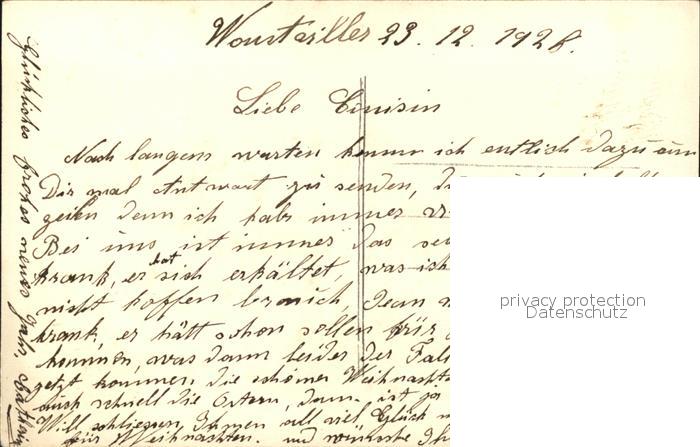 Woustviller 23. 12. 1928.
Liebe Cousin
Nach langem warten komme ich entlich dazu um
Dir mal Antwort zu senden,
zeihen denn ich habe immer
Bei uns ist immer das
krank, er hat sich erkältet, was ich
nicht hoffen Jean
krank, er hätt schon sollen für
kommen, was dann leider der Fall
jetzt kommen die schönen Weihnachts
auch schnell die Ostern, dann ist
Will schliessen, Ihnen all viel Glück
für Weihnachten. und wünsche Ih
Glückliches frohes neues Jahr,
privacy protection
Datenschutz